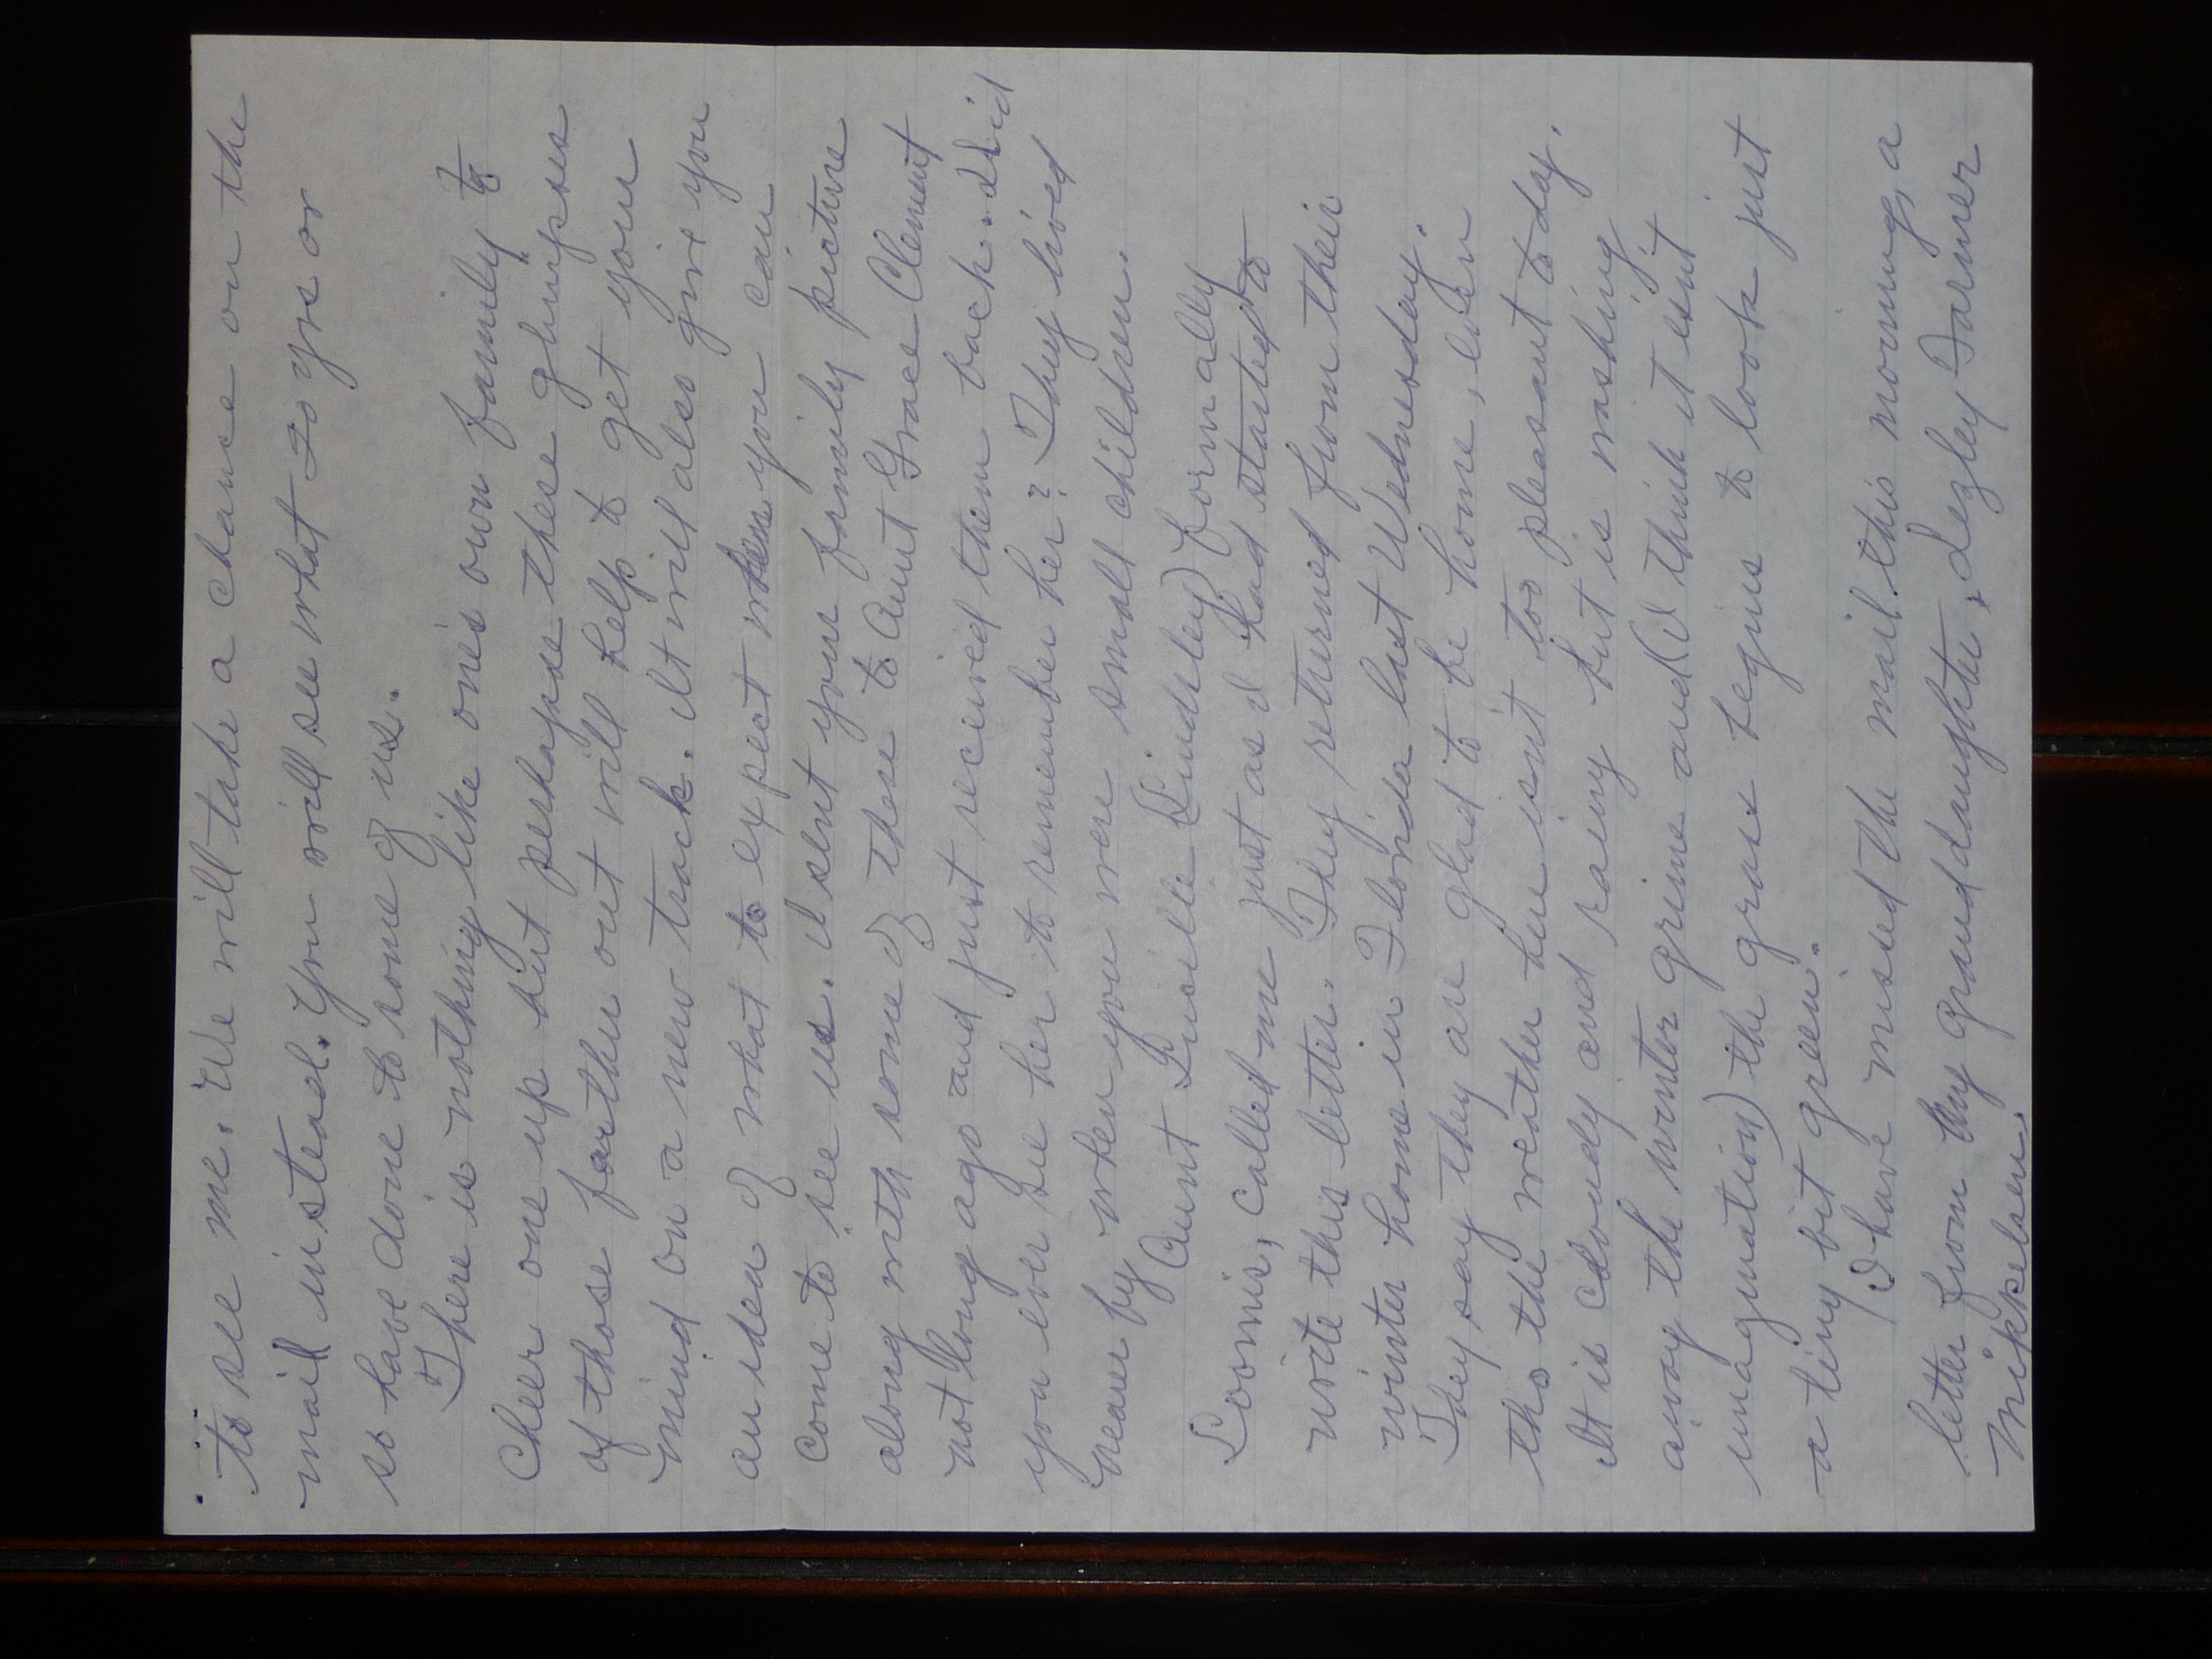 to see me. We will take a chance on the
mail instead. You will see what 20 yrs or
so have done to some of us.
There is nothing like one's own family to
cheer one up but perhapse these glimpses
of those farther out will help to get your
mind on a new track. It will also give you
an idea of what to expect when you can
come to see us. I sent your family picture
along with some of these to Aunt Grace Clement
not long ago and just received them back. Did
you ever see her to remember her? They lived
near by when you were small children.
Aunt Lucille (Lindsley) formally
Loomis, called me just as I had started to
write this letter. They returned from their
winter home in Florida last Wednesday.
They say they are glad to be home, even
tho the weather here isn't too pleasant to day.
It is cloudy and rainy but is washing
away the winter grime and (I think it isnt
imagination) the grass begins to look just
a tiny bit green.
I have missed the mail this morning, a
letter from my granddaughter, Lezley Farmer
Mikkelsen.